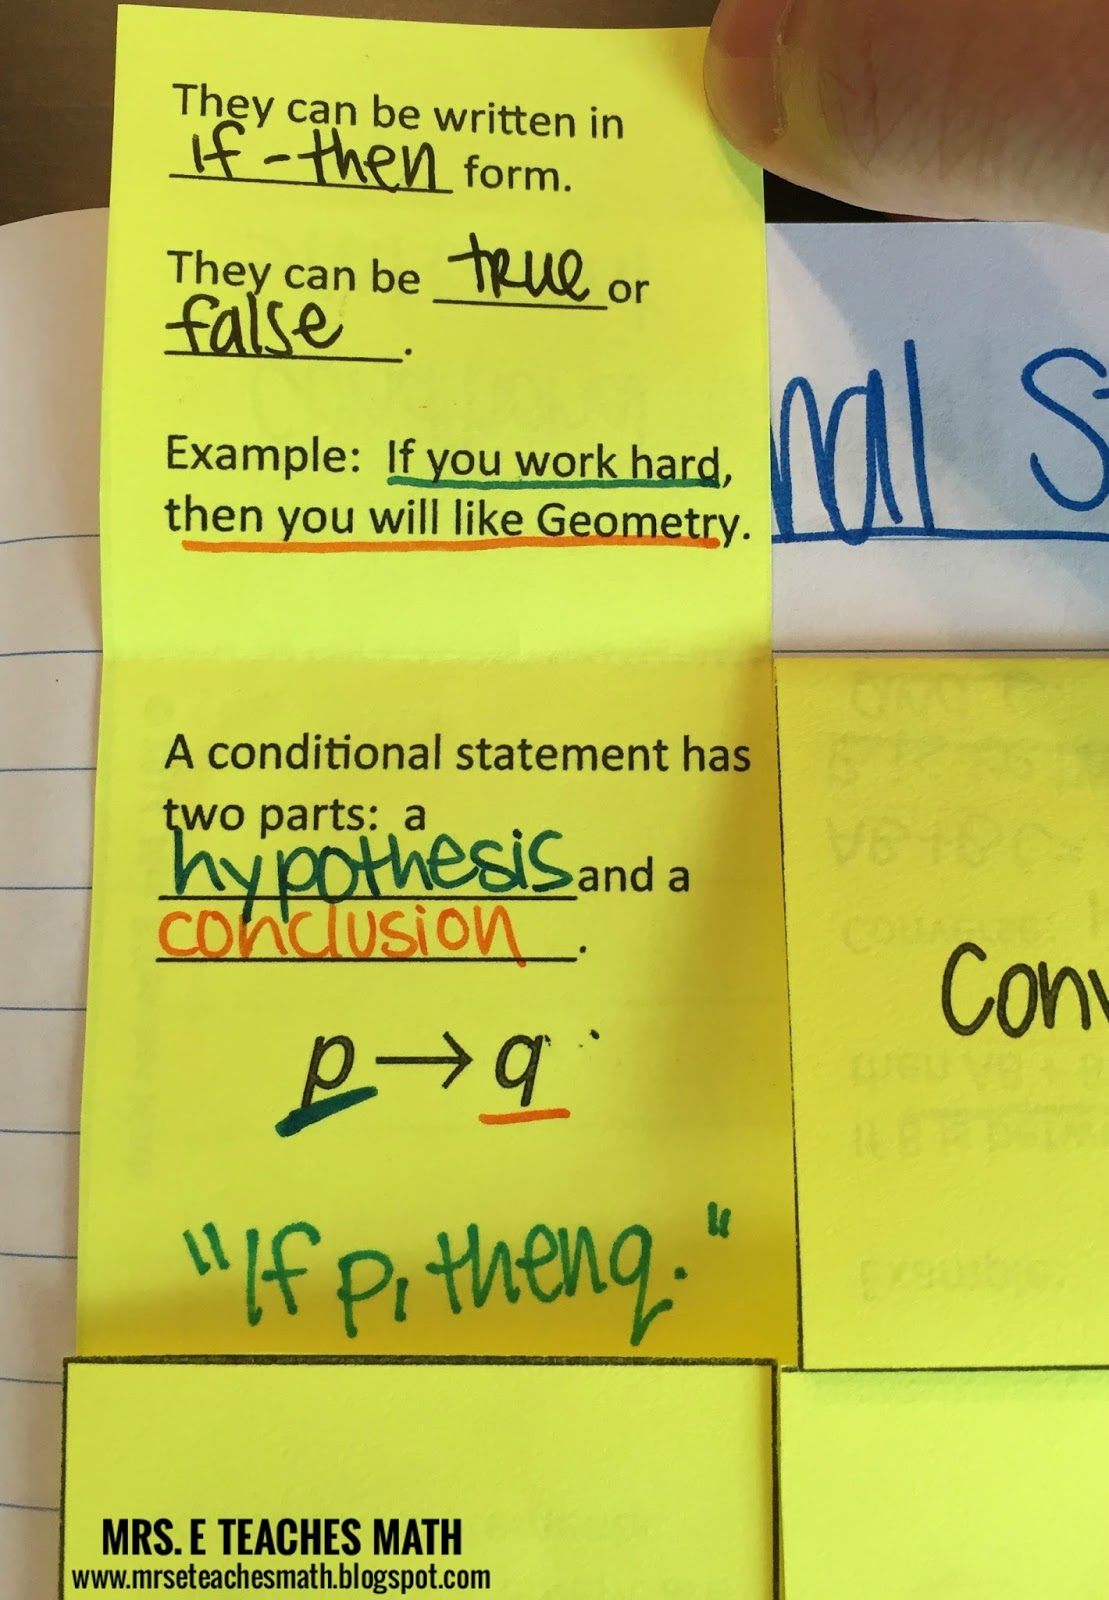 They can be written in
if - then form.
They can be true or
false.
Example: If you work hard,
then you will like Geometry.
A conditional statement has
two parts: a
hypothesis and a
conclusion.
p → q
"If p, then q."
MRS. E TEACHES MATH
www.mrseteachesmath.blogspot.com